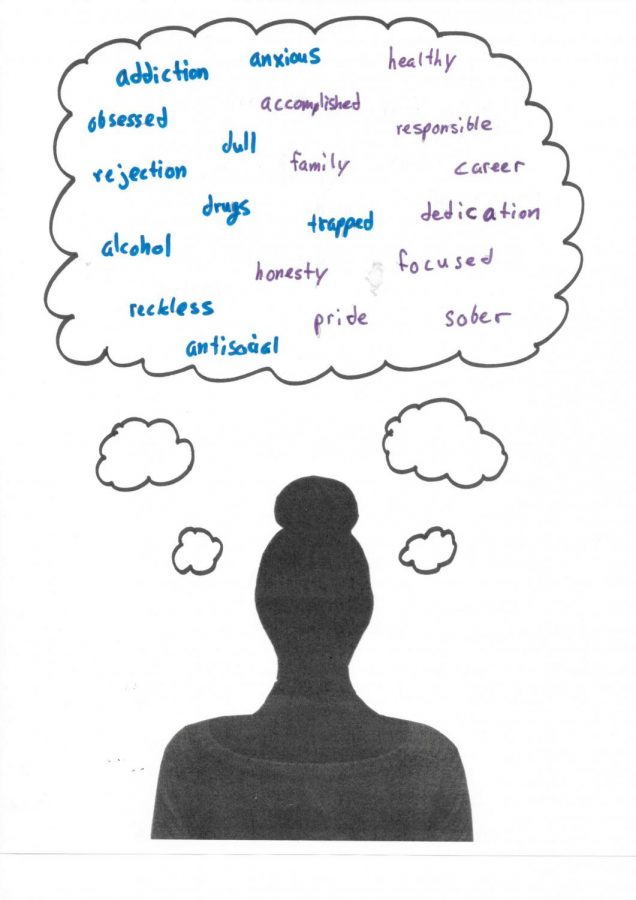 addiction anxious healthy
obsessed accomplished responsible
dull
rejection family career
drugs trapped dedication
alcohol honesty focused
reckless pride sober
antisocial